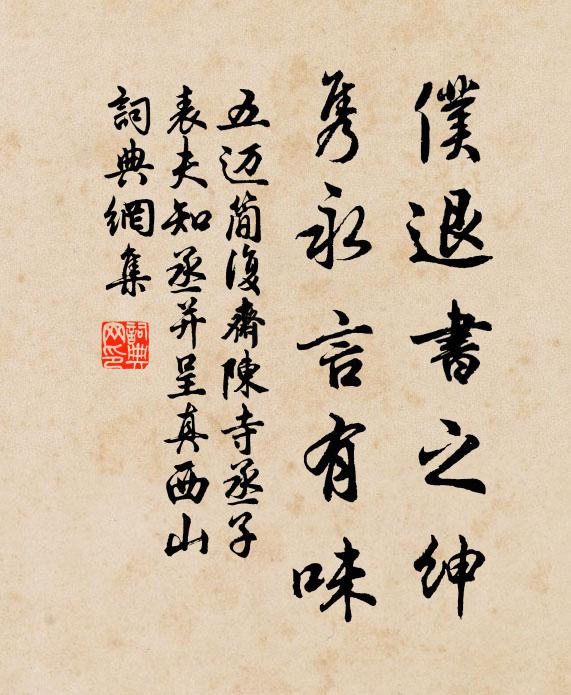 僕退書之紳
隽永言有味
五迈简復齋陳寺丞子
表夫知丞并呈真西山
詞典網集
詞典网印